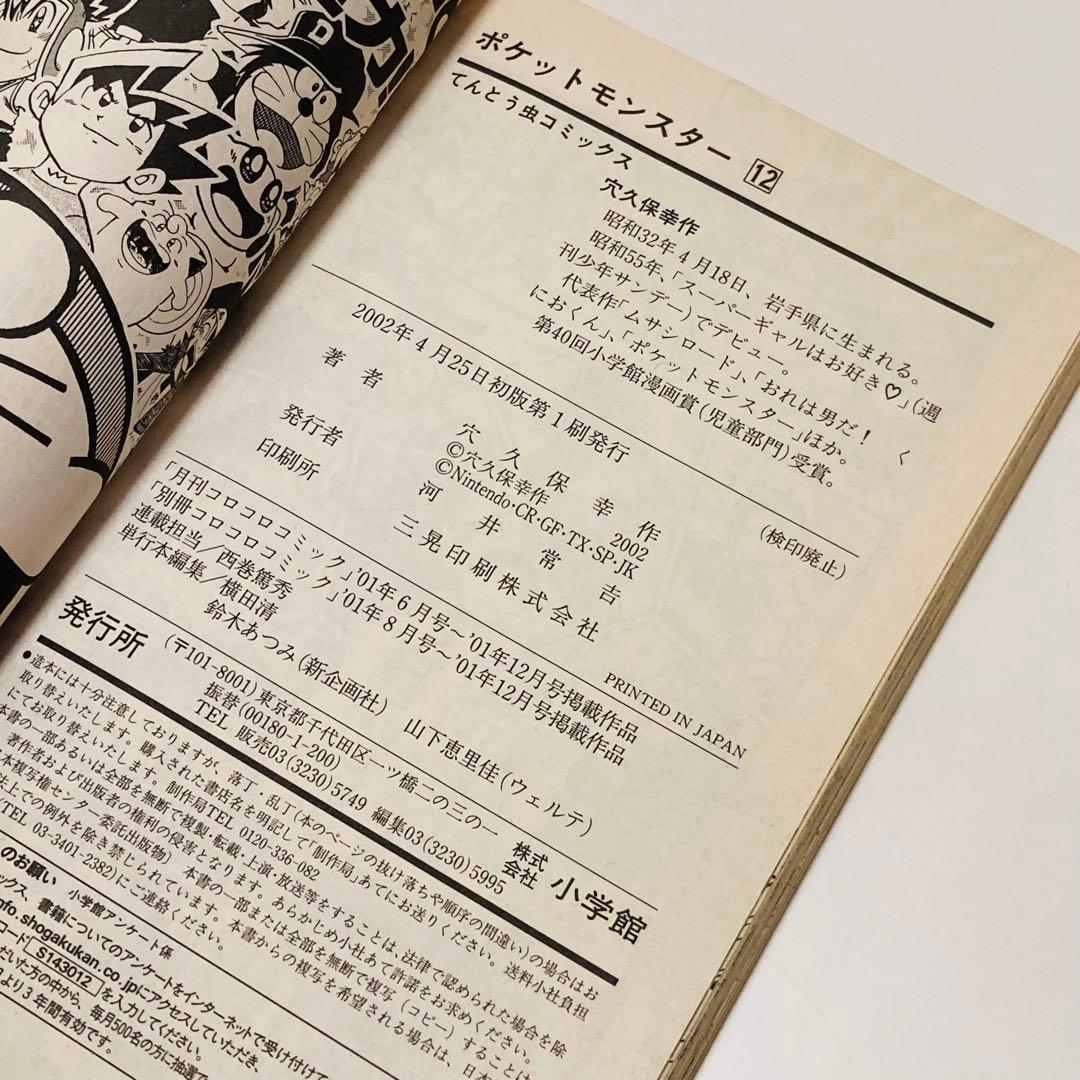 ポケットモンスター 12
てんとう虫コミックス
穴久保幸作
昭和32年4月18日、岩手県に生まれる。
昭和55年、「スーパーギャルはお好き♡」(週
刊少年サンデー)でデビュー。
代表作「ムサシロード」、「おれは男だ！ く
におくん」、「ポケットモンスター」ほか。
第40回小学館漫画賞(児童部門)受賞。
2002年4月25日初版第1刷発行
(検印廃止)
著者 穴久保幸作
©穴久保幸作 2002
©Nintendo・CR・GF・TX・SP・JK
発行者 河井常吉
印刷所 三晃印刷株式会社
PRINTED IN JAPAN
「月刊コロコロコミック」'01年6月号〜'01年12月号掲載作品
「別冊コロコロコミック」'01年8月号〜'01年12月号掲載作品
連載担当／西巻篤秀
単行本編集／横田清
鈴木あつみ(新企画社) 山下恵里佳(ウェルテ)
発行所 (〒101-8001)東京都千代田区一ツ橋二の三の一 株式会社 小学館
振替(00180-1-200)
TEL 販売03(3230)5749 編集03(3230)5995
●造本には十分注意しておりますが、落丁・乱丁(本のページの抜け落ちや順序の間違い)の場合はお
取り替えいたします。購入された書店名を明記して「制作局」あてにお送りください。送料小社負担
にてお取り替えいたします。制作局TEL 0120-336-082
本書の一部あるいは全部を無断で複製・転載・上演・放送等をすることは、法律で認められた場合を除
著作者および出版者の権利の侵害となります。あらかじめ小社あて許諾をお求めください。
本複写権センター委託出版物〉 本書の一部または全部を無断で複写(コピー)することは
法上での例外を除き禁じられています。本書からの複写を希望される場合は、日本
TEL 03-3401-2382)にご連絡ください。
のお願い 小学館アンケート係
ックス、書籍についてのアンケートをインターネットで受け付けて
nfo.shogakukan.co.jpにアクセスしていただき、
コード S143012 を入力してください。
だいた方の中から、毎月500名の方に抽選で
より3年間有効です。